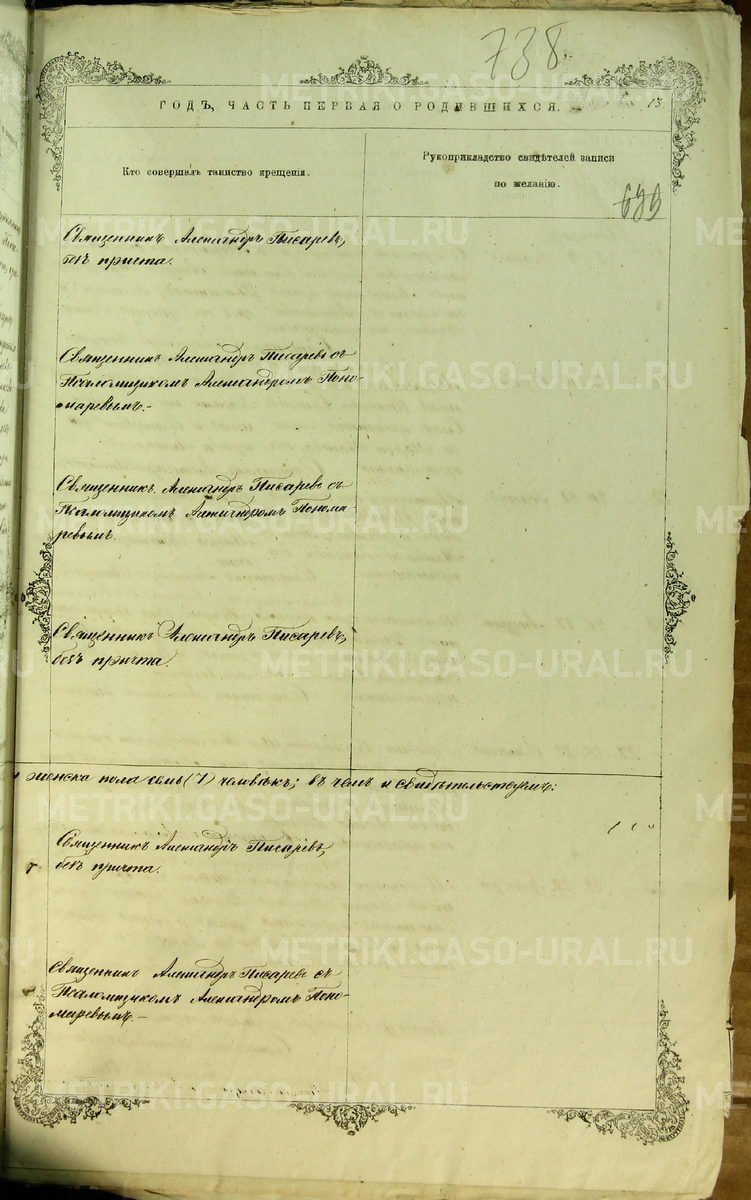 738
ГОДЪ, ЧАСТЬ ПЕРВАЯ О РОДИВШИХСЯ. 13
Кто совершалъ таинство крещенія.
Рукоприкладство свидѣтелей записи
по желанію.
Священникъ Александръ Писаревъ,
безъ причта.
Священникъ Александръ Писаревъ съ
Псаломщикомъ Александромъ Поно-
маревымъ.-
Священникъ Александръ Писаревъ съ
Псаломщикомъ Александромъ Понома-
ревымъ.
Священникъ Александръ Писаревъ,
безъ причта.
женска пола семь (7) человѣкъ; въ чемъ и свидѣтельствуемъ:
Священникъ Александръ Писаревъ,
безъ причта.
Священникъ Александръ Писаревъ съ
Псаломщикомъ Александромъ Поно-
маревымъ.-
METRIKI.GASO-URAL.RU